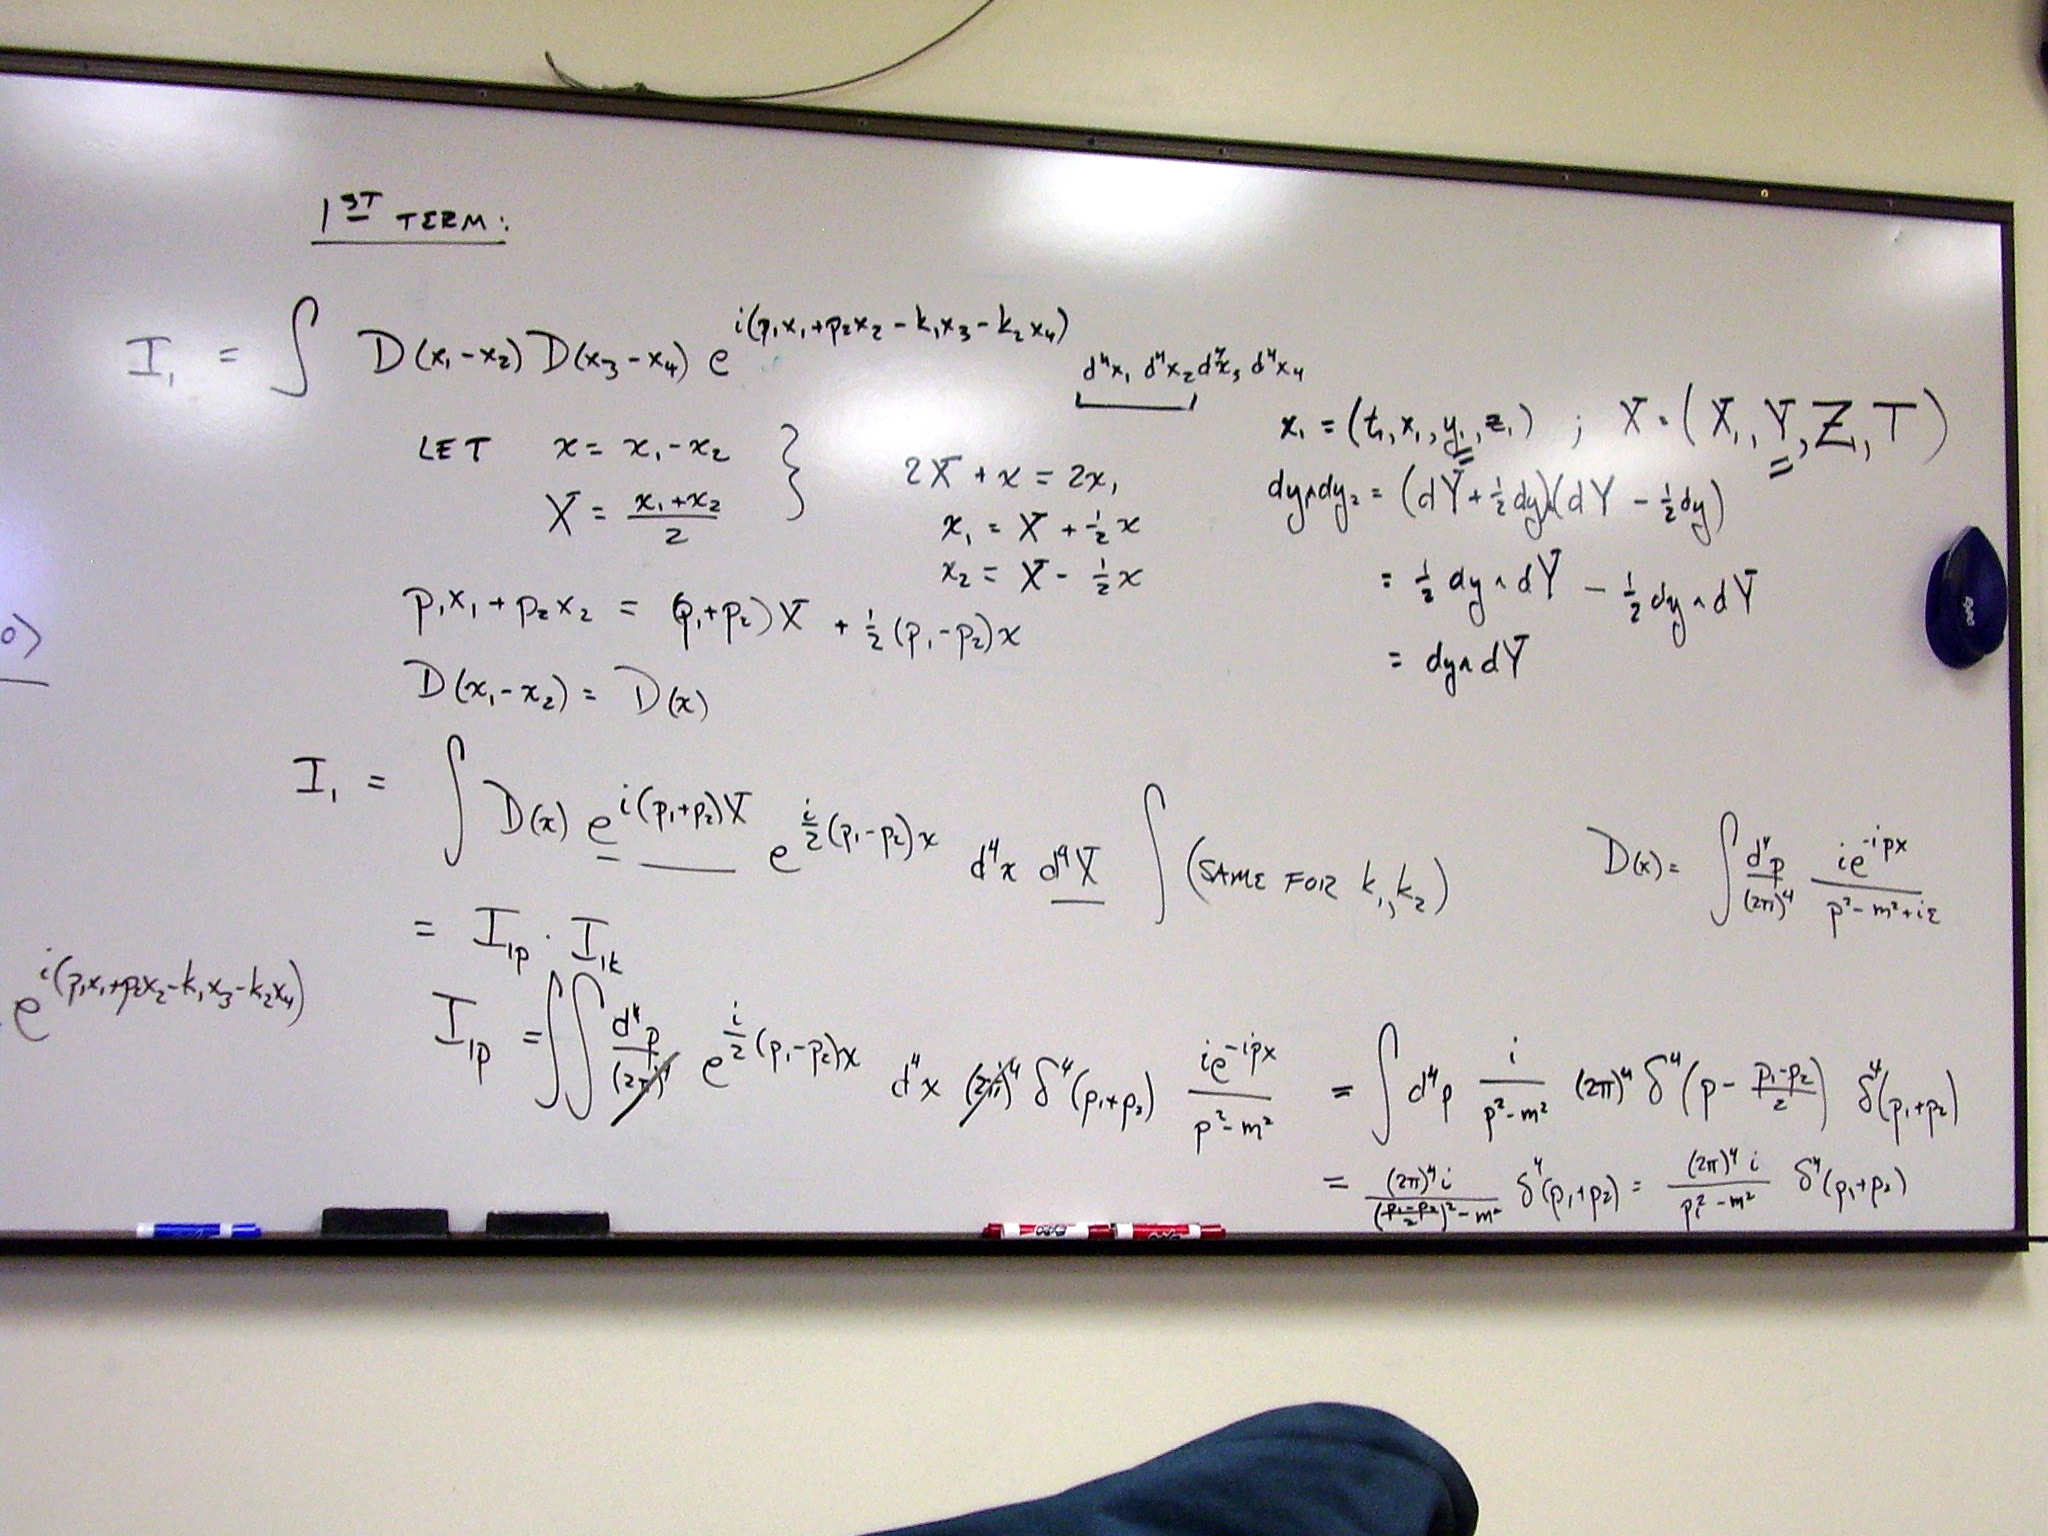 1ST TERM:
I₁ = ∫ D(x₁-x₂) D(x₃-x₄) e^{i(p₁x₁+p₂x₂-k₁x₃-k₂x₄)} d⁴x₁ d⁴x₂ d⁴x₃ d⁴x₄
LET x = x₁-x₂
X = (x₁+x₂)/2
2X + x = 2x₁
x₁ = X + ½x
x₂ = X - ½x
x₁ = (t₁, x₁, y₁, z₁) ; X = (X, Y, Z, T)
dy₁∧dy₂ = (dY + ½dy)∧(dY - ½dy)
= ½ dy∧dY - ½ dy∧dY
= dy∧dY
p₁x₁ + p₂x₂ = (p₁+p₂)X + ½(p₁-p₂)x
D(x₁-x₂) = D(x)
I₁ = ∫ D(x) e^{i(p₁+p₂)X} e^{i/2 (p₁-p₂)x} d⁴x d⁴X ∫ (SAME FOR k₁,k₂)
D(x) = ∫ d⁴p/(2π)⁴ ie^{-ipx}/(p²-m²+iε)
= I₁p · I₁k
0⟩
e^{i(p₁x₁+p₂x₂-k₁x₃-k₂x₄)}
I₁p = ∫∫ d⁴p/(2π)⁴ e^{i/2 (p₁-p₂)x} d⁴x (2π)⁴ δ⁴(p₁+p₂) ie^{-ipx}/(p²-m²) = ∫ d⁴p i/(p²-m²) (2π)⁴ δ⁴(p - (p₁-p₂)/2) δ⁴(p₁+p₂)
= (2π)⁴i/(((p₁-p₂)/2)²-m²) δ⁴(p₁+p₂) = (2π)⁴ i/(p₁²-m²) δ⁴(p₁+p₂)